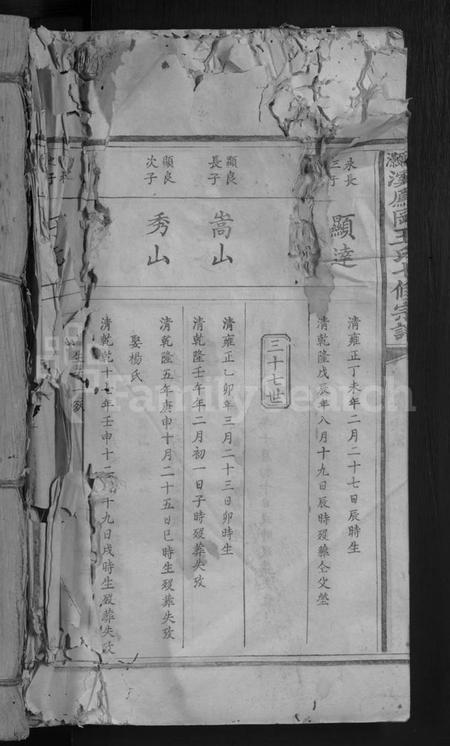 溪鳳岡王氏七修宗譜
永長
三子
顯達
清雍正丁未年二月二十七日辰時生
清乾隆戊辰年八月十九日辰時歿葬仝父塋
三十七世
顯良
長子
嵩山
清雍正乙卯年三月二十三日卯時生
清乾隆壬午年二月初一日子時歿葬失攷
顯良
次子
秀山
清乾隆五年庚申十月二十五日巳時生歿葬失攷
娶楊氏
生
清乾乾十七年壬申十二月十九日戌時生歿葬失攷
FamilySearch